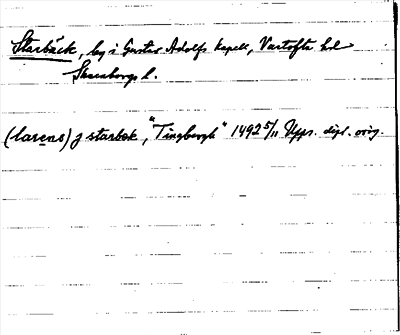 Starbäck, by i Gustav Adolfs kapell, Vartofta hd
Skaraborgs l.
(larens) j starbek, "Tingbergh" 1492 5/11 Upps. dipl. orig.